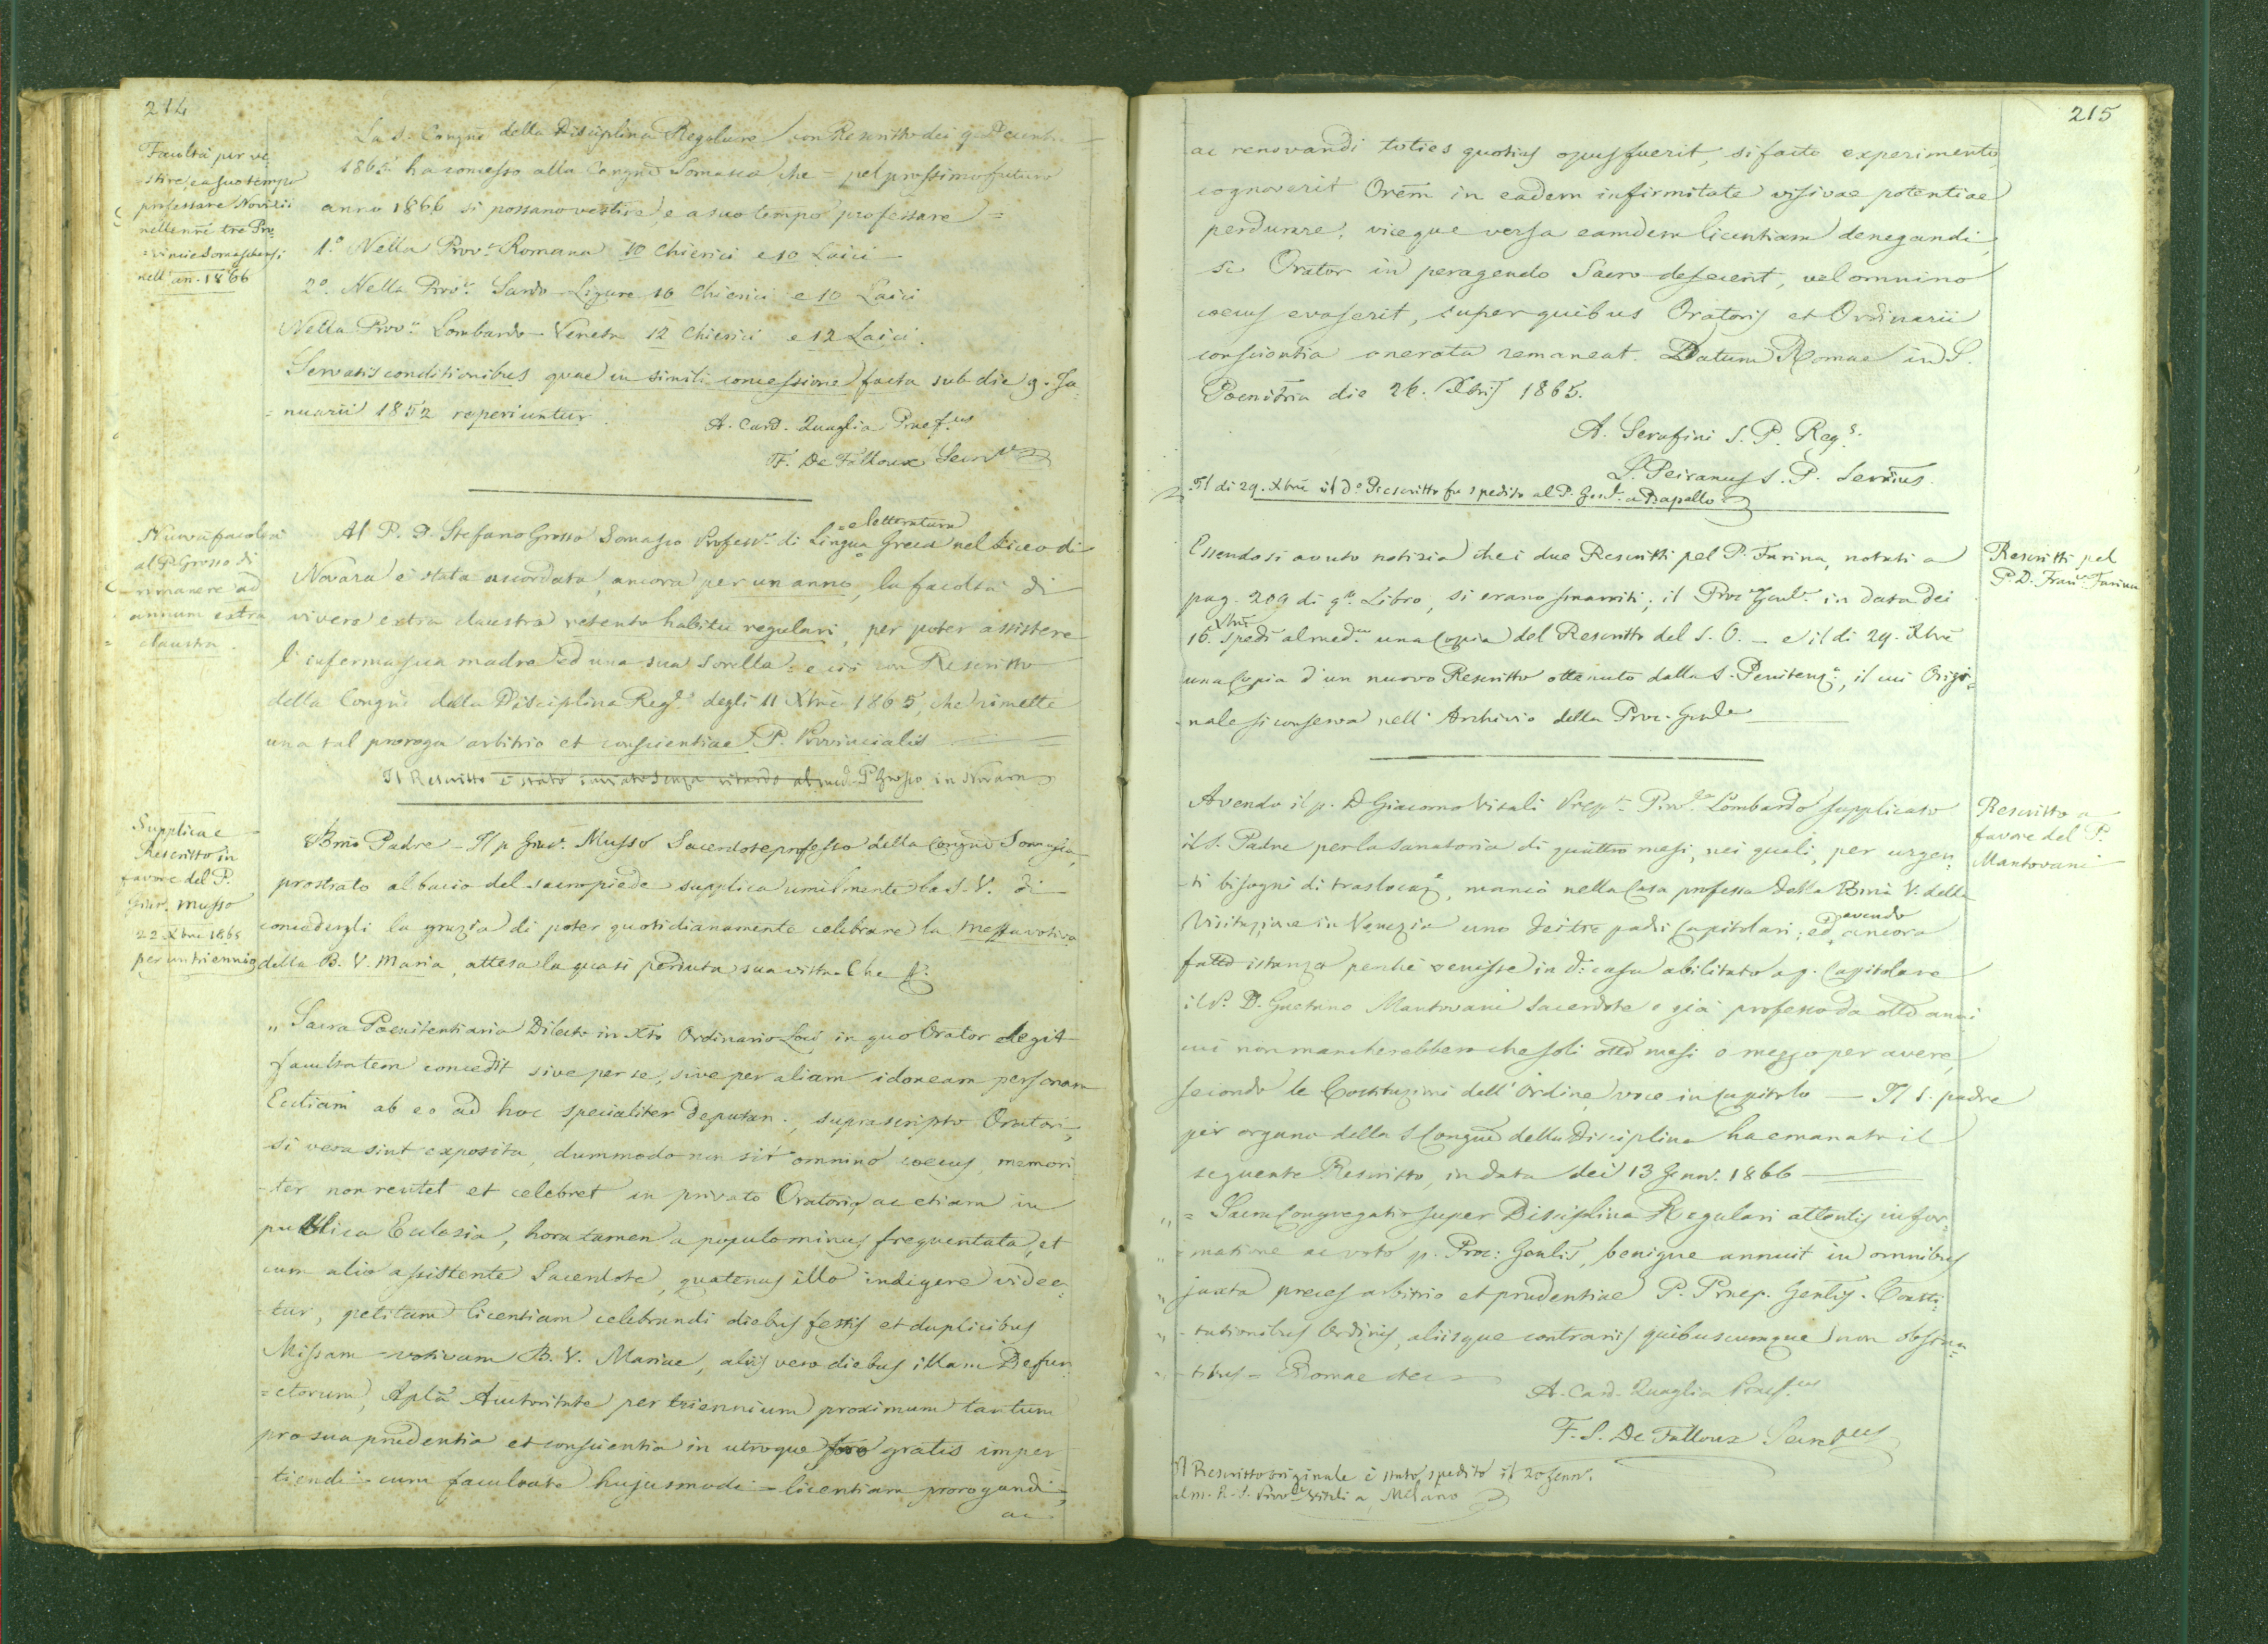 214
Facoltà per ve-
stire, e a suo tempo
professare Novizii
nelle nr̃e tre Pro-
vincie Somaschensi
nell'an. 1866
La S. Congne della Disciplina Regolare con Rescritto dei 9. Decemb.
1865 ha concesso alla Congne Somasca che = pel prossimo futuro
anno 1866 si possano vestire, e a suo tempo professare =
1.º Nella Prov.ª Romana 10 Chierici e 10 Laici
2.º Nella Prov.ª Sardo-Ligure 10 Chierici e 10 Laici
Nella Prov.ª Lombardo-Veneta 12 Chierici e 12 Laici.
Servatis conditionibus quae in simili concessione facta sub die 9. Ja-
nuarii 1852 reperiuntur.
A. Card. Quaglia Praef.us
F. De Falloux Secr.
Nuova facoltà
al P. Grosso di
rimanere ad
annum extra
claustra.
Al P. D. Stefano Grosso Somasco Profess.e di Lingua = e letteratura Greca nel Liceo di
Novara è stata accordata, ancora per un anno, la facoltà di
vivere extra claustra retento habitu regulari, per poter assistere
l'inferma sua madre ed una sua sorella: e ciò con Rescritto
della Congne della Disciplina Reg.e degli 11 Xbre 1865, che rimette
una tal proroga arbitrio et conscientiae P. Provincialis
Il Rescritto è stato inviato senza ritardo al med. P. Grosso in Novara
Supplica e
Rescritto in
favore del P.
Gius. Musso
22. Xbre 1865
per un triennio
Bmo Padre - Il p. Gius. Musso Sacerdote professo della Congne Somasca,
prostrato al bacio del sacro piede supplica umilmente la S. V. di
concedergli la grazia di poter quotidianamente celebrare la messa votiva
della B. V. Maria, attesa la quasi perduta sua vista. Che &.
„ Sacra Poenitentiaria Dilecto in Xto Ordinario Loci in quo Orator degit
facultatem concedit sive per se, sive per aliam idoneam personam
Eccliam ab eo ad hoc specialiter deputan., suprascripto Oratori,
si vera sint exposita, dummodo non sit omnino coecus, memori-
-ter non recitet et celebret in privato Oratorio, ac etiam in
publica Eclesia, hora tamen a populo minus frequentata, et
cum alio assistente Sacerdote, quatenus illo indigere videa-
-tur, petitam licentiam celebrandi diebus festis et duplicibus
Missam votivam B. V. Mariae, aliis vero diebus illam Defun-
=ctorum, Aplca Auctoritate per triennium proximum tantum
pro sua prudentia et conscientia in utroque foro gratis imper-
tiendi = cum facultate hujusmodi = licentiam prorogandi,
ac
215
ac renovandi toties quoties opus fuerit, si facto experimento
cognoverit Orem in eadem infirmitate visivae potentiae
perdurare, viceque versa eamdem licentiam denegandi,
si Orator in peragendo Sacro defecerit, vel omnino
coecus evaserit, super quibus Oratoris et Ordinarii
conscientia onerata remaneat. Datum Romae in S.
Poenitria die 26. Xbris 1865.
A. Serafini S. P. Reg.s
L. Peiranus S. P. Secrius.
Il dì 29. Xbre il d.º Rescritto fu spedito al P. Gen.le a Rapallo
Rescritti pel
P. D. Fran.co Farina
Essendosi avuto notizia che i due Rescritti pel P. Farina, notati a
pag. 209 di q.to Libro, si erano smarriti; il Proc. Genle. in data dei
16. Xbre spedì al med.mo una Copia del Rescritto del S. O. - e il dì 29. Xbre
una Copia d'un nuovo Rescritto ottenuto dalla S. Penitenz.ª, il cui Origi-
nale si conserva nell'Archivio della Proc. Gnle
Rescritto a
favore del P.
Mantovani
Avendo il p. D. Giacomo Vitali Prep.to Prov.le Lombardo supplicato
il S. Padre per la sanatoria di quattro mesi, nei quali, per urgen-
-ti bisogni di traslocaz.e, mancò nella Casa professa della Bma V. della
Visitazione in Venezia uno dei tre padri Capitolari; ed avendo ancora
fatto istanza perchè venisse in d.ª casa abilitato a p. Capitolare
il P. D. Gaetano Mantovani Sacerdote e già professo da otto anni
cui non mancherebbero che soli otto mesi e mezzo per avere,
secondo le Costituzioni dell'Ordine, voce in Capitolo — Il S. padre
per organo della S. Congne della Disciplina ha emanato il
seguente Rescritto, in data dei 13 Genn. 1866
„ = Sacra Congregatio super Disciplina Regulari attentis infor-
„ matione ac voto p. Proc: Gnlis, benigne annuit in omnibus
„ juxta preces arbitrio et prudentiae P. Praep. Gnlis. Consti-
„ -tutionibus Ordinis, aliisque contrariis quibuscumque non obstan-
„ -tibus = Romae etc.
A. Card. Quaglia Praef.us
F. S. De Falloux Secret.us
Il Rescritto originale è stato spedito il 20 Genn.
al m. R. P. Prov.le Vitali a Milano